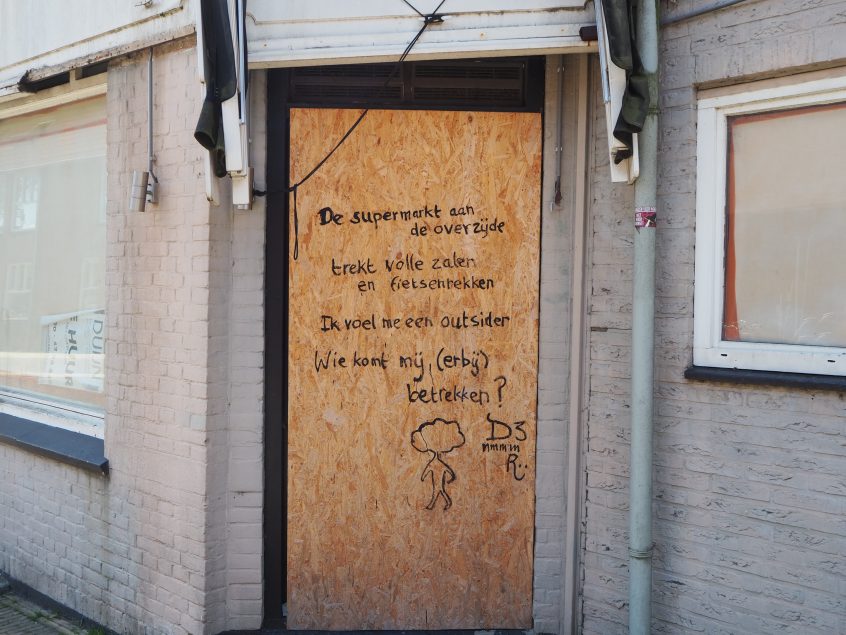 De supermarkt aan
de overzijde
trekt volle zalen
en fietsenrekken
Ik voel me een outsider
Wie komt mij (erbij)
betrekken?
D3
mmmm
R